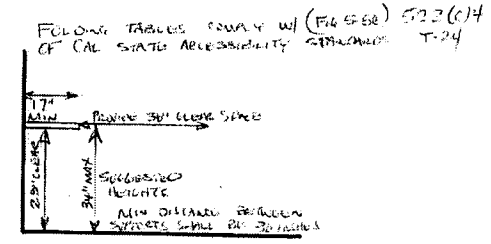 FOLDING TABLES COMPLY W/ (FIG 5-26E) 523(c)4
OF CAL STATE ACCESSIBILITY STANDARDS T-24
17"
MIN
PROVIDE 36" CLEAR SPACE
29" CLEAR
34" MAX
SUGGESTED
HEIGHTS
MIN DISTANCE BETWEEN
SUPPORTS SHALL BE 30 INCHES